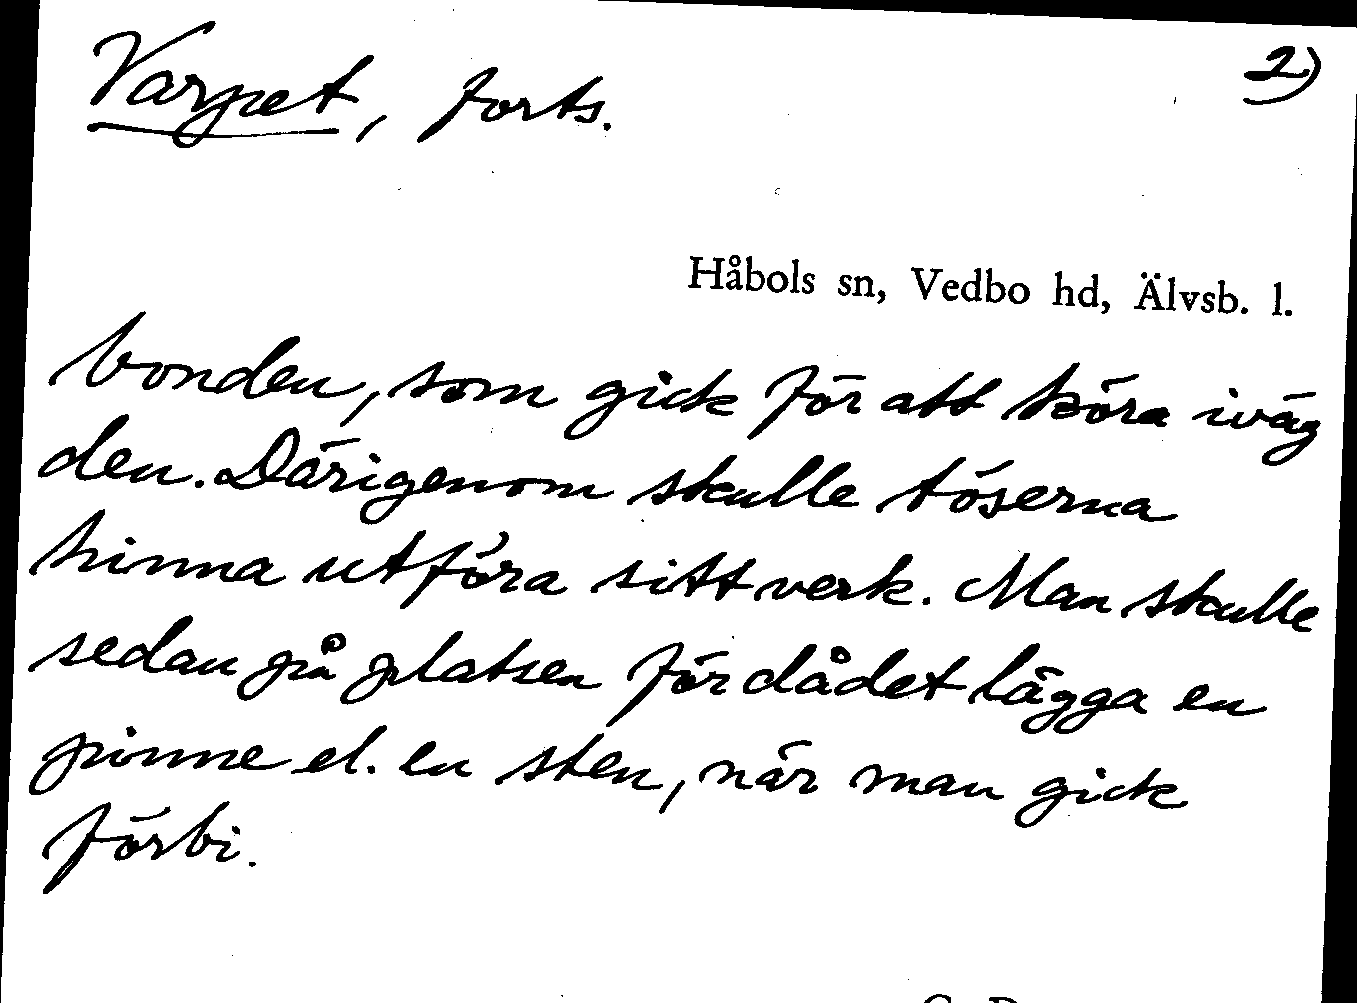 Varpet, forts.
2)
Håbols sn, Vedbo hd, Älvsb. l.
bonden, som gick för att köra iväg
den. Därigenom skulle töserna
hinna utföra sitt verk. Man skulle
sedan på platsen för dådet lägga en
pinne el. en sten, när man gick
förbi.